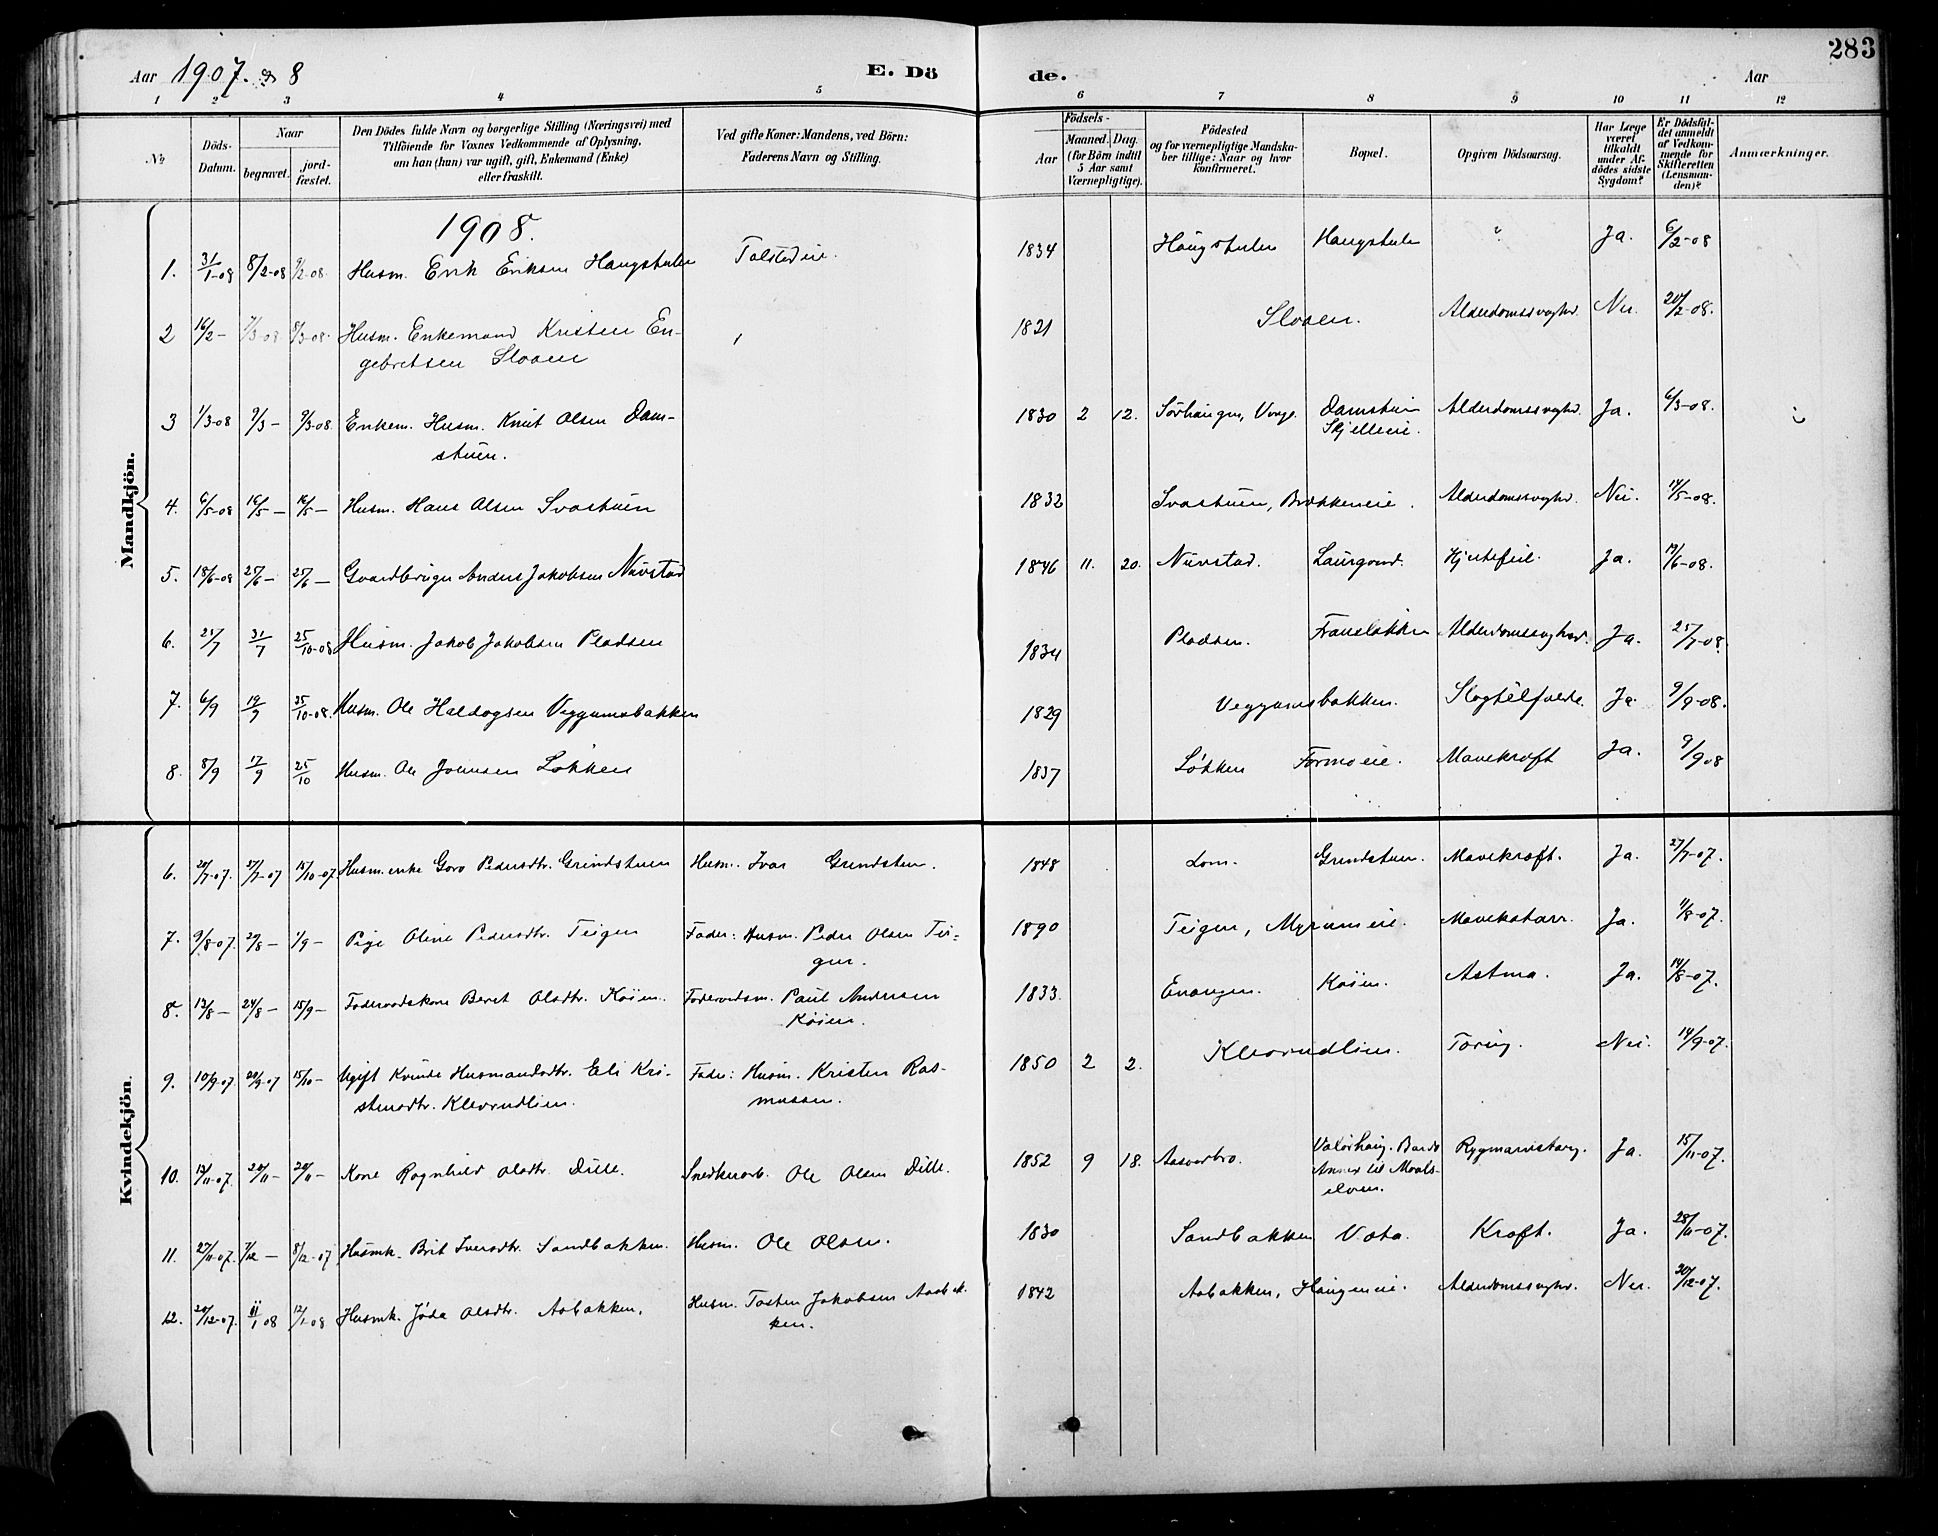 283
Aar 1907. & 8 E. Dö de. Aar
1 2 3 4 5 6 7 8 9 10 11 12
No
Döds-Datum.
Naar
begravet.
jord-fæstet.
Den Dödes fulde Navn og borgerlige Stilling (Næringsvei) med
Tilföiende for Voxnes Vedkommende af Oplysning,
om han (hun) var ugift, gift, Enkemand (Enke)
eller fraskilt.
Ved gifte Koner: Mandens, ved Börn:
Faderens Navn og Stilling.
Födsels-
Aar
Maaned. Dag.
(for Börn indtil
5 Aar samt
Værnepligtige).
Födested
og for værnepligtige Mandska-
ber tillige: Naar og hvor
konfirmeret.
Bopæl.
Opgiven Dödsaarsag.
Har Læge
været
tilkaldt
under Af-
dödes sidste
Sygdom?
Er Dödsfal-
det anmeldt
af Vedkom-
mende for
Skifteretten
(Lensman-
den)?
Anmærkninger.
Mandkjön.
1908.
1. 31/1-08 8/2-08 9/2-08 Husm. Erik Eriksen Haugstulen Tolstadeie. 1834 Haugstulen Haugstulen ? Ja. 6/2-08
2 16/2- 7/3-08 8/3-08. Husm. Enkemand Kristen En-
gebretsen Sloaen 1821 Sloaen. Alderdomssvaghed. Nei. 20/2-08.
3 1/3-08 9/3- 9/3-08. Enkem. Husm. Knut Olsen Dam-
stuen. 1830 2 12. Sörhaugen, Vaage. Damstuen
Skjelleeie. Alderdomssvaghd. Ja. 6/3-08.
4. 6/5-08 16/5- 16/5- Husm. Hans Olsen Svastuen 1832 Svastuen, Brækkeneie. Alderdomssvaghd. Nei. 14/5-08.
5. 18/6-08 25/6- 25/6- Gaardbruger Anders Jakobsen Nustad 1846 11. 20. Nustad. Laurgaard. Hjertefeil. Ja. 19/6-08.
6. 21/7 31/7 25/10-08 Husm. Jakob Jakobsen Pladsen 1834 Pladsen. Alderdomssvaghed. Ja. 25/7-08.
7. 6/9 19/9 25/10-08. Husm. Ole Haldogsen Veggumsbakken 1829 Veggumsbakken. Slagtilfælde. Ja. 9/9-08.
8. 8/9 17/9 25/10 Husm. Ole Johnsen Løkken 1837 Løkken Formoeie. Mavekræft Ja. 9/9 08
Kvindekjön.
6. 20/7-07. 27/7-07 15/10-07. Husm.enke Goro Pedersdtr. Grindstuen Husm. Ivar Grindstuen. 1848 Lom. Grindstuen. Mavekræft. Ja. 27/7-07.
7. 9/8-07. 27/8- 1/9- Pige Oline Pedersdtr. Teigen Fader: Husm. Peder Olsen Tei-
gen. 1890 Teigen, Myrumeie. Mavekatarr. Ja. 11/8-07.
8. 13/8- 24/8- 15/9- Föderaadskone Beret Olsdtr. Köien. Föderaadsm. Paul Andersen
Köien. 1833. Enangen. Köien. Astma. Ja. 14/8-07.
9. 10/9-07. 20/9-07 15/10- Ugift Kvinde Husmandsdtr. Eli Kri-
stensdtr. Klevrudlien. Fader: Husm. Kristen Ras-
mussen. 1850 2 2. Klevrudlien. Tæring. Nei. 14/9-07.
10. 13/11-07. 20/11- 20/11- Kone Ragnhild Olsdtr. Dille. Snedkerarb. Ole Olsen Dille. 1852 9 18. Aasverbro. Valörhaug. Bardo
Annex til Maals-
elven. Rygmarvstæring. Ja. 15/11-07.
11. 27/11-07. 7/12- 8/12-07 Husmk. Brit Iversdtr. Sandbakken. Husm. Ole Olsen. 1830 Sandbakken Vata. Kræft. Ja. 28/11-07.
12. 20/12-07. 11/1 08 12/1-08 Husmk. Jöda Olsdtr. Aabakken. Husm. Tosten Jakobsen Aabak-
ken. 1842 Aabakken, Haugeneie. Alderdomssvaghd. Nei. 20/12-07.